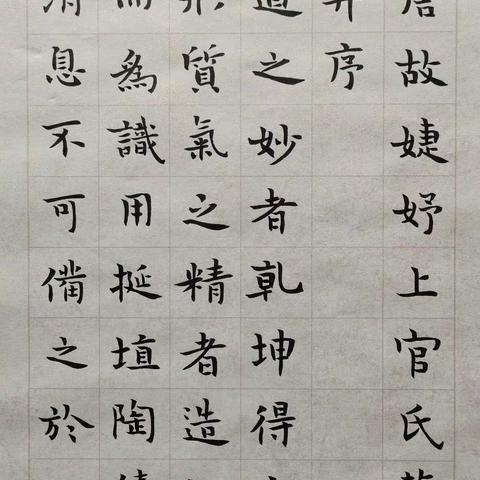 唐故婕妤上官氏
并序
道之妙者乾坤得
形質氣之精者造
而為識用挺埴陶
消息不可備之於